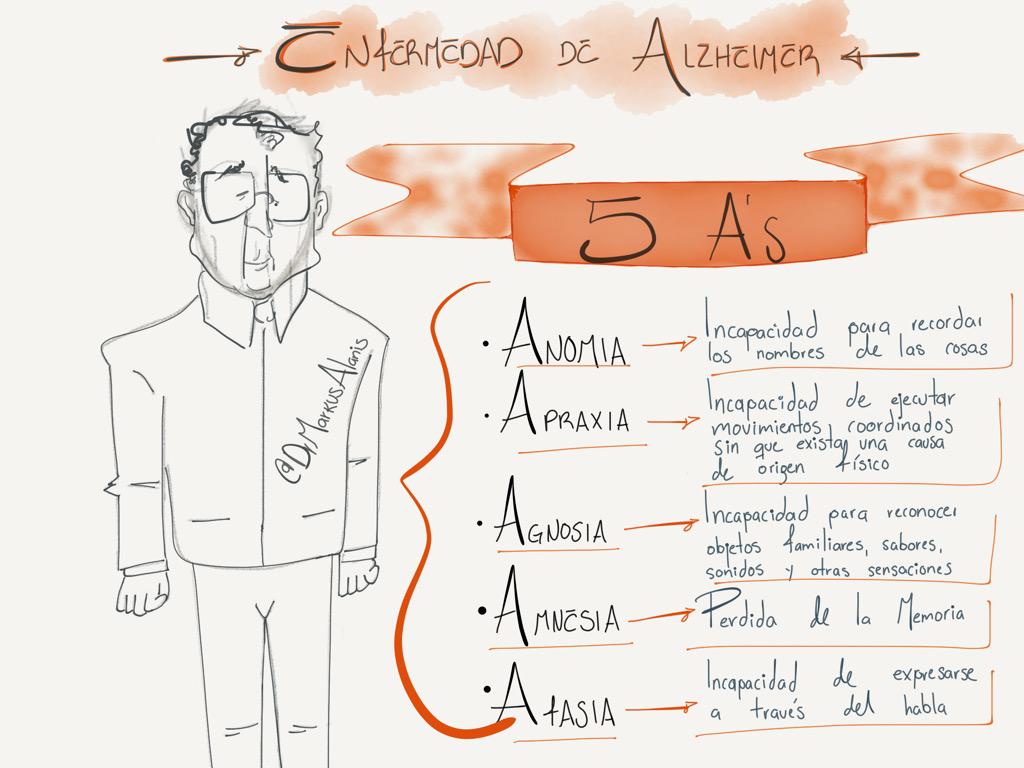 ENFERMEDAD DE ALZHEIMER
5 A's
@Dr.MarkusAlanis
• ANOMIA
Incapacidad para recordar
los nombres de las cosas
• APRAXIA
Incapacidad de ejecutar
movimientos coordinados
sin que exista una causa
de origen físico
• AGNOSIA
Incapacidad para reconocer
objetos familiares, sabores,
sonidos y otras sensaciones
• AMNESIA
Perdida de la Memoria
• AfASIA
Incapacidad de expresarse
a través del habla